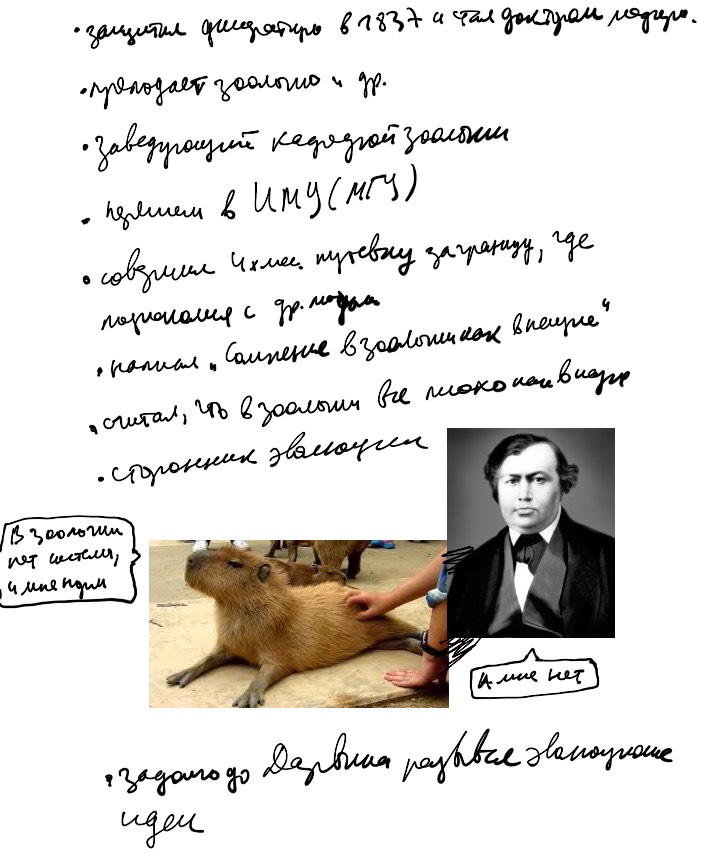 • защитил диссертацию в 1837 и стал доктором медицины.
• преподаёт зоологию и др.
• Заведующий кафедрой зоологии
• перешел в ИМУ (МГУ)
• совершил 4х мес. путёвку заграницу, где
познакомился с др.
• написал „Сомнение в зоологии как в науке“
• считал, что в зоологии все плохо как в науке
• сторонник эволюции
В зоологии
нет системы,
и мне норм
А мне нет
• задолго до Дарвина развивал эволюционные
идеи